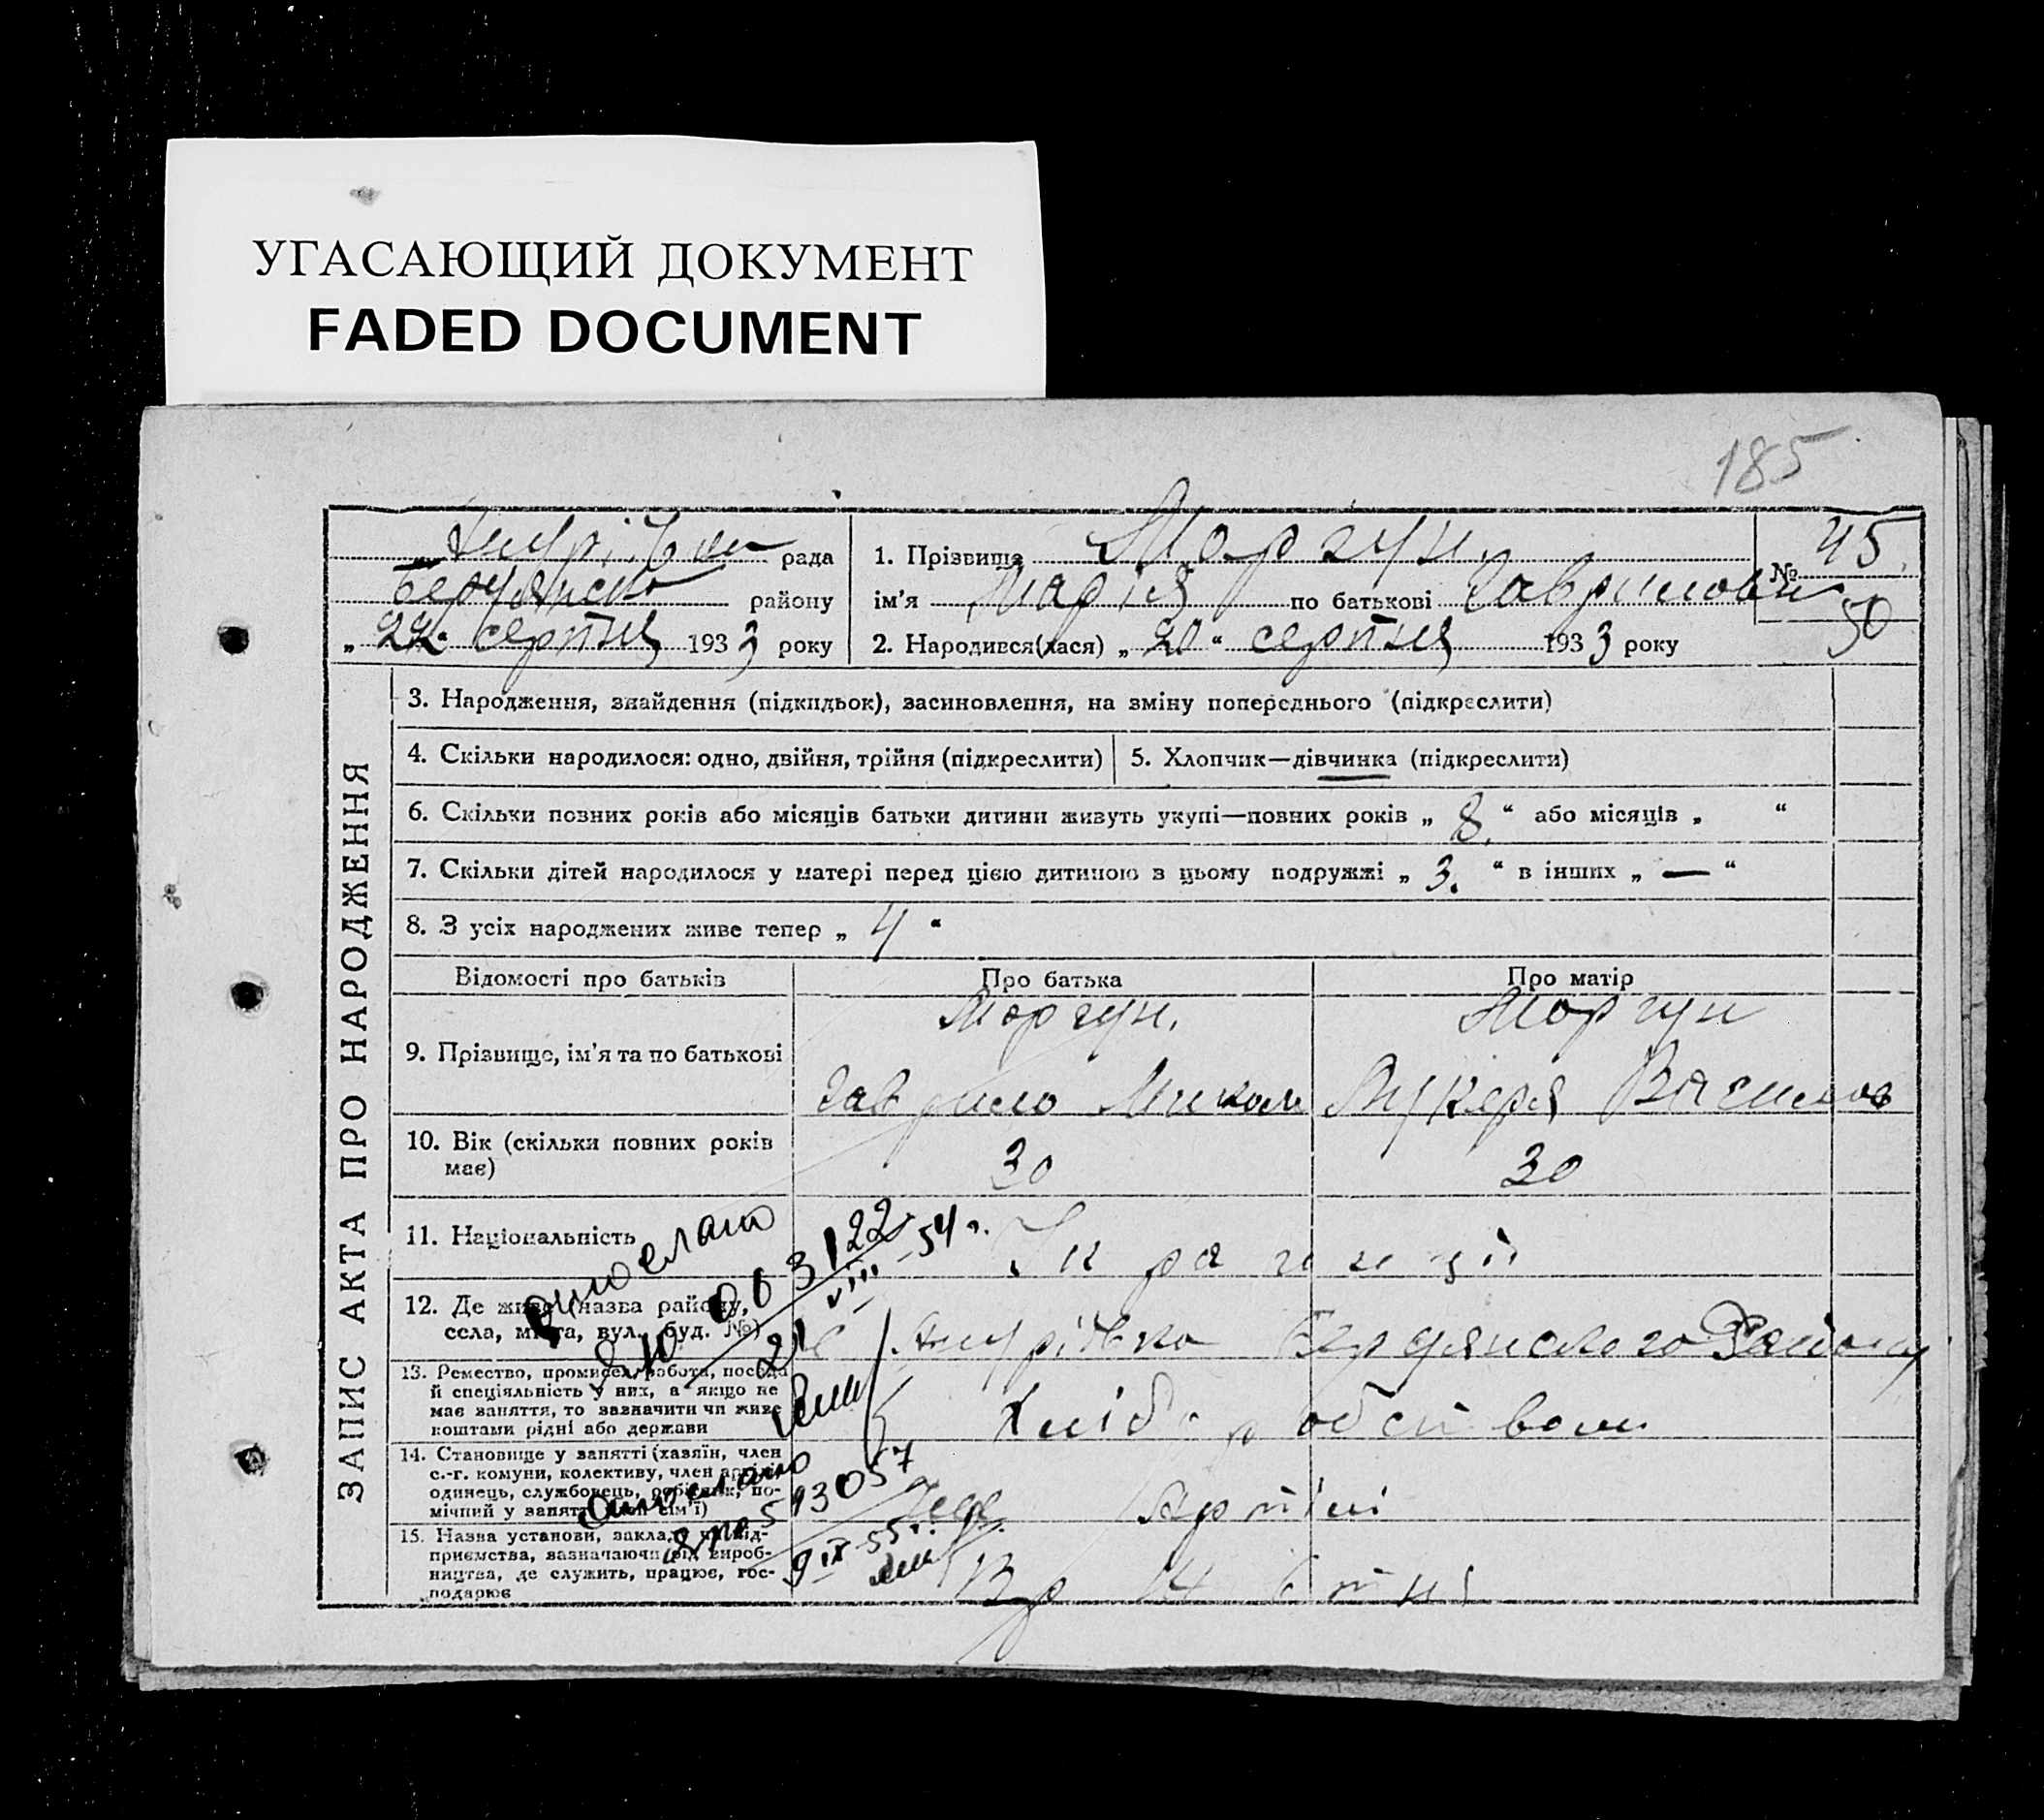 УГАСАЮЩИЙ ДОКУМЕНТ
FADED DOCUMENT
185
рада
району
„ 22 “ серпня 1933 року
1. Прізвище Моргун
ім'я Марія по батькові Гаврилови
2. Народився(лася) „ 20 “ серпня 1933 року
№ 45
50
ЗАПИС АКТА ПРО НАРОДЖЕННЯ
3. Народження, знайдення (підкидьок), засиновлення, на зміну попереднього (підкреслити)
4. Скільки народилося: одно, двійня, трійня (підкреслити)
5. Хлопчик—дівчинка (підкреслити)
6. Скільки повних років або місяців батьки дитини живуть укупі—повних років „ 8. “ або місяців „ “
7. Скільки дітей народилося у матері перед цією дитиною в цьому подружжі „ 3. “ в інших „ — “
8. З усіх народжених живе тепер „ 4 “
Відомості про батьків
Про батька
Про матір
9. Прізвище, ім'я та по батькові
Моргун.
Гаврило Микол
Моргун
Лукеря Василов
10. Вік (скільки повних років
має)
30
30
11. Національність
12. Де живе (назва району,
села, міста, вул., буд. №)
Бердянского Району
13. Ремество, промисел, робота, посада
й спеціяльність у них, а якщо не
має заняття, то зазначити чи живе
коштами рідні або держави
14. Становище у занятті (хазяїн, член
с.-г. комуни, колективу, член артілі,
одинець, службовець, робітник, по-
мічний у занятті член сім'ї)
Член Артілі
15. Назва установи, закладу чи під-
приємства, зазначаючи рід вироб-
ництва, де служить, працює, гос-
подарює